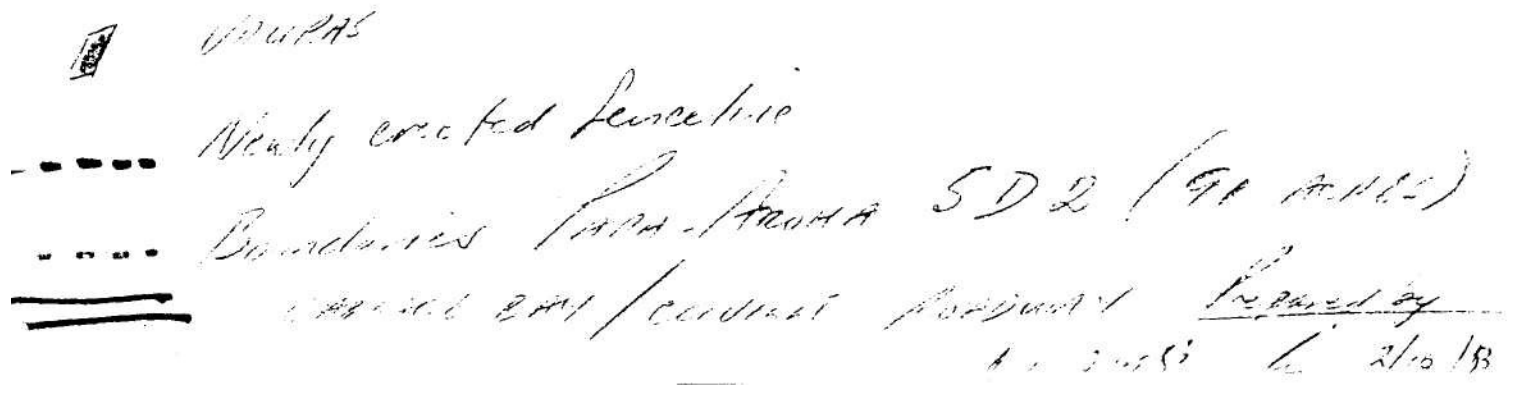 URUPAS
Newly erected fenceline
Boundaries PAPA-AROHA 5D2 (91 ACRES)
BAY / ROADWAY Prepared by
2/10/83